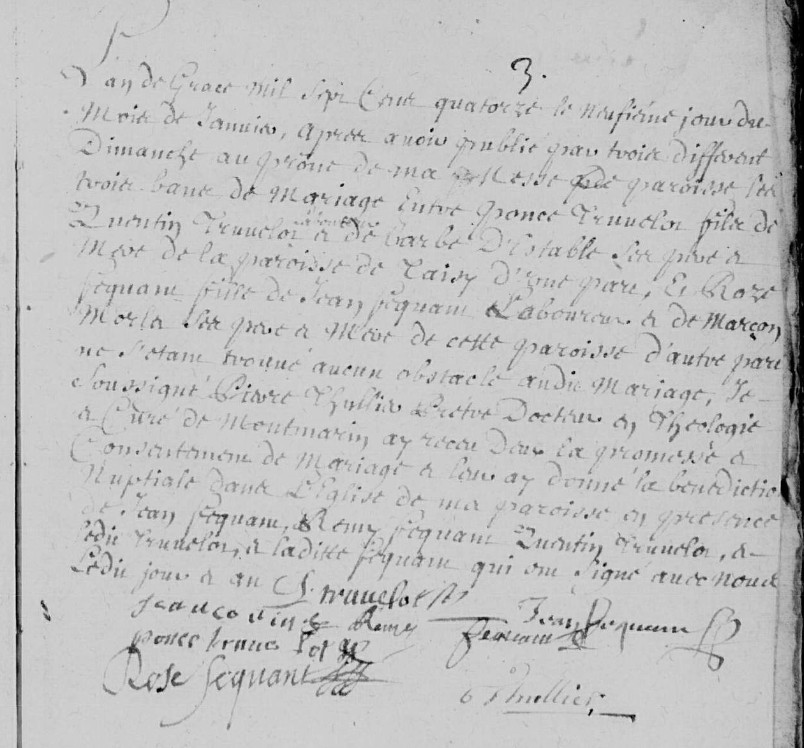 3.
L'an de Grace Mil Sept Cent quatorze le neufiéme jour du
Mois de Janvier, apres avoir publié par trois different
Dimanche au prône de ma Messe de paroisse les
trois bans de Mariage Entre Ponce Truvelot fils de
Quentin Truvelot laboureur & de Barbe D'Estable ses pere &
Mere de la paroisse de Taisy d'une part, Et Roze
sequant fille de Jean sequant Laboureur & de Marson
Morla ses pere & Mere de cette paroisse d'autre part
ne s'etant trouvé aucun obstacle audit Mariage, Je
Soussigné Pierre Thullier Prêtre Docteur en Theologie
& Curé de Montmarin ay receu d'eux la promesse &
Consentement de Mariage & leur ay donné la benedictio
Nuptiale dans L'Eglise de ma paroisse en presence
de Jean sequant, Remy sequant Quentin Truvelot, &
ledit Truvelot, & laditte sequant qui ont signé avec nous
Ledit jour & an
Q truvelot
Jean Sequant
Remy sequant
ponce
Rose sequant
P Thullier